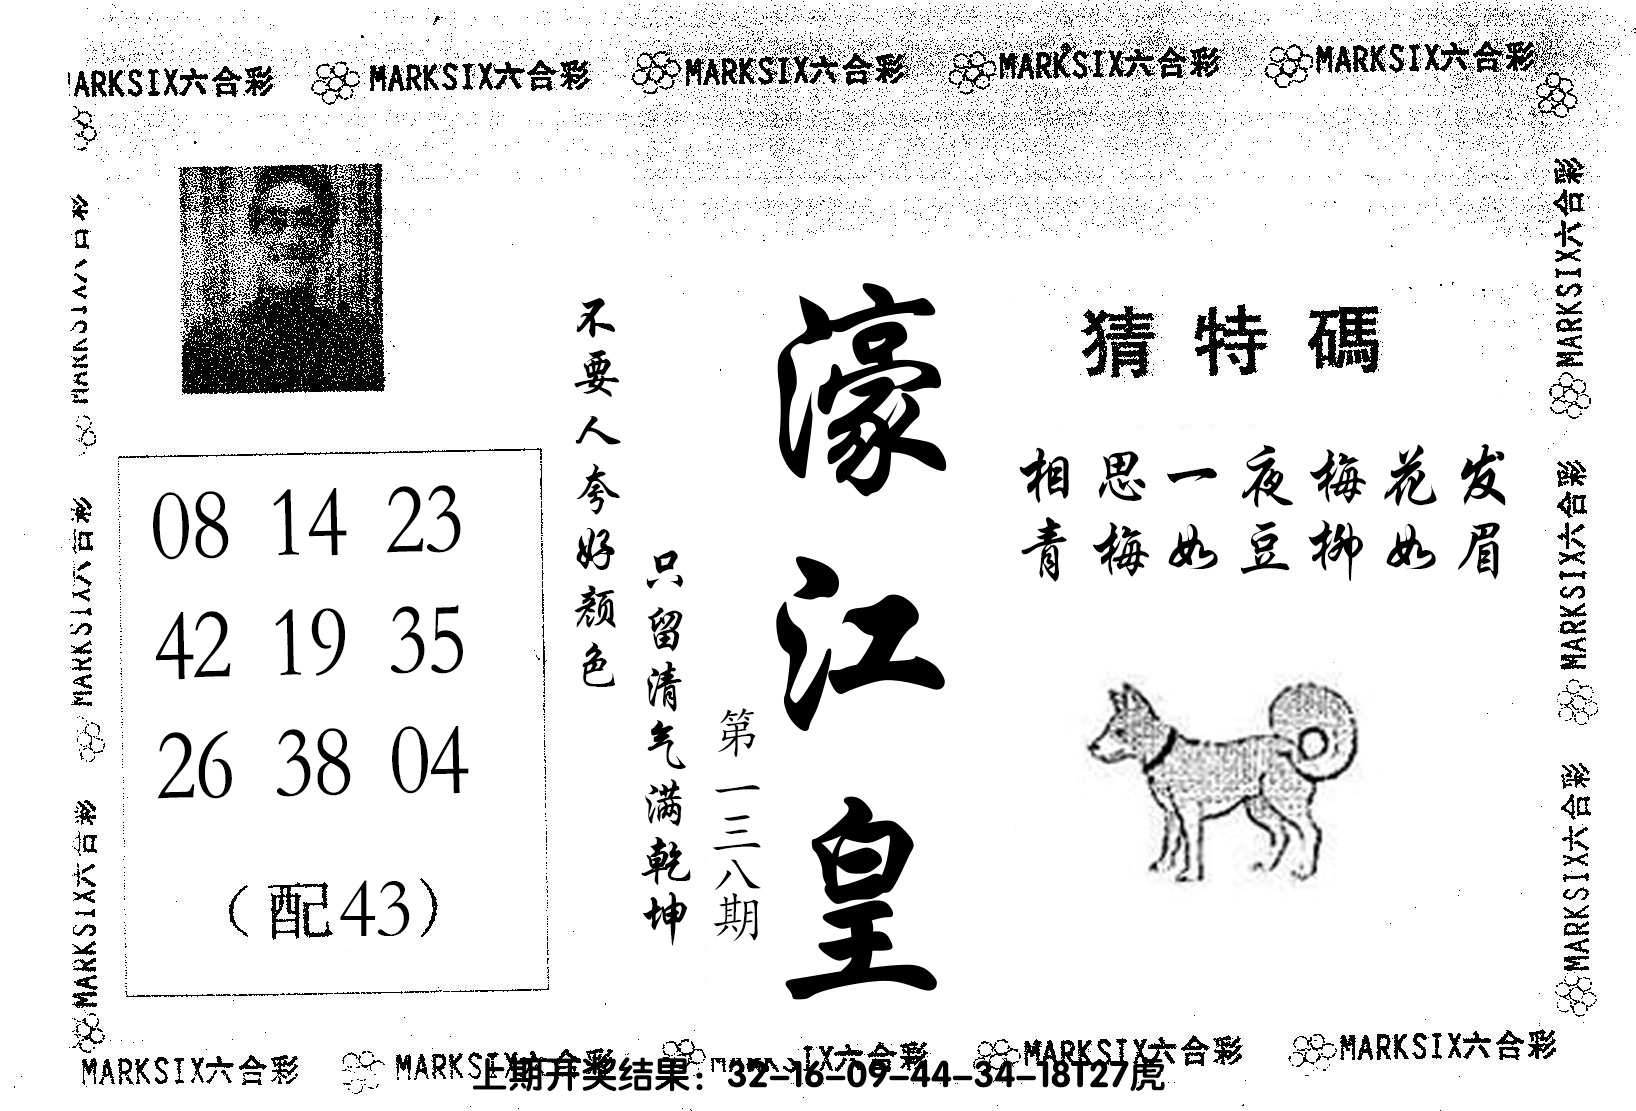 MARKSIX六合彩 MARKSIX六合彩 MARKSIX六合彩 MARKSIX六合彩
猜特碼
相思一夜梅花发
青梅如豆柳如眉
濠江皇
第一三八期
不要人夸好颜色
只留清气满乾坤
08 14 23
42 19 35
26 38 04
（配43）
MARKSIX六合彩
MARKSIX六合彩
MARKSIX六合彩
MARKSIX六合彩
MARKSIX六合彩
MARKSIX六合彩 MARKSIX六合彩 MARKSIX六合彩 MARKSIX六合彩
上期开奖结果：32-16-09-44-34-18T27虎